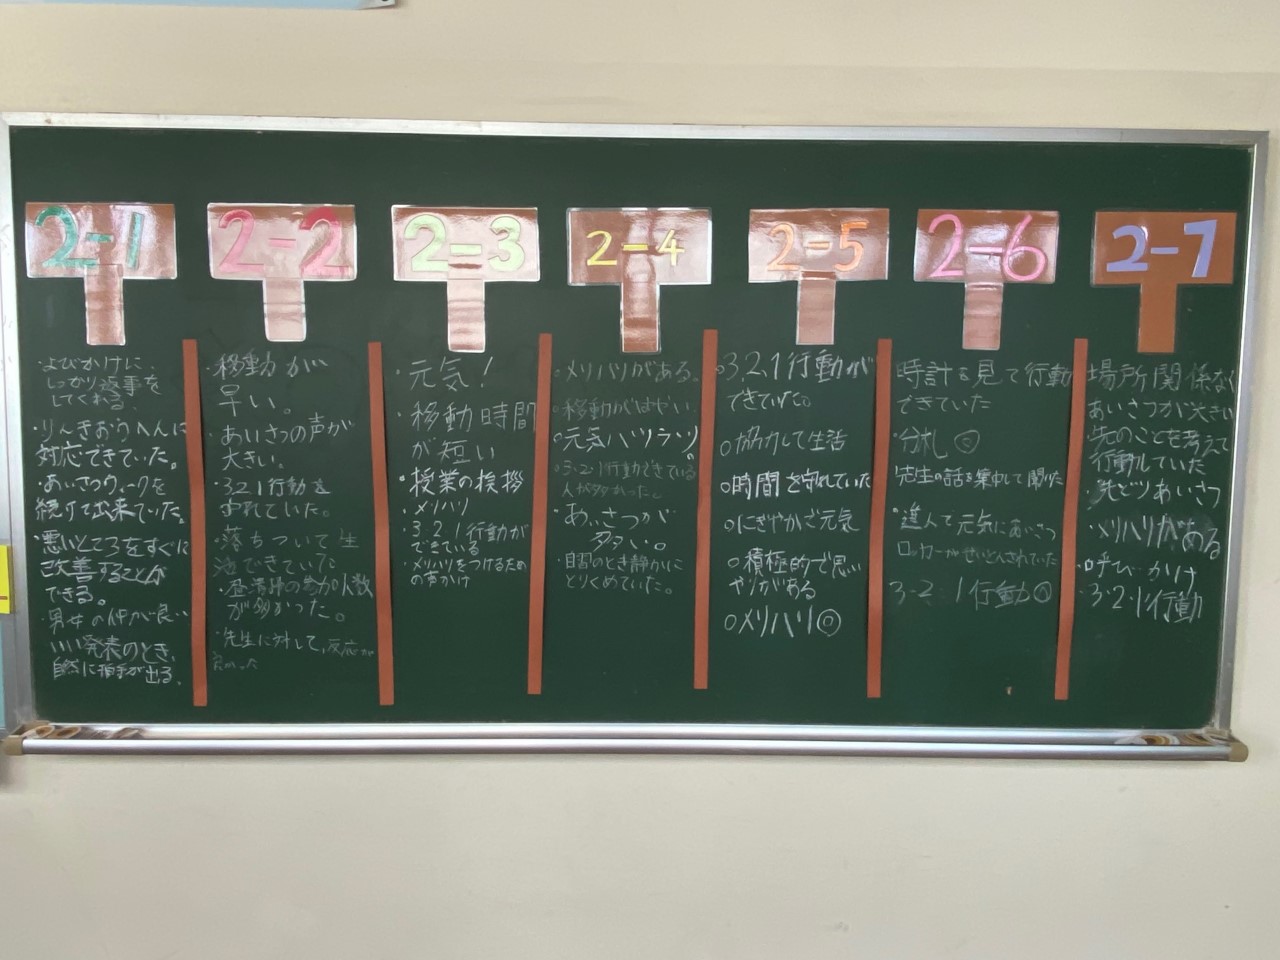 2-1
・よびかけに、
しっかり返事を
してくれる。
・りんきおうへんに
対応できていた。
・あいさつウィークを
続けて出来ていた。
・悪いところをすぐに
改善することが
できる。
・男女の仲が良い
いい発表のとき、
自然に拍手が出る。
2-2
・移動が
早い。
・あいさつの声が
大きい。
・321行動を
されていた。
・落ちついて生
活できていた。
が多かった。
・先生に対して、反応が
良かった
2-3
・元気！
・移動時間
が短い
・授業の挨拶
・メリハリ
・3.2.1行動が
できている
・メリハリをつけるため
の声かけ
2-4
・メリハリがある。
・移動がはやい
・元気ハツラツ
・3・2・1行動できている
人が多かった。
・あいさつが
多い。
・自習のとき静かに
とりくめていた。
2-5
○3.2.1行動が
できていた。
○協力して生活
○時間を守れていた
○にぎやかで元気
○積極的で思い
やりがある
○メリハリ◎
2-6
時計を見て行動
できていた
・分札◎
・先生の話を集中して聞けた
・進んで元気にあいさつ
ロッカーがせいとんされていた
3・2・1行動◎
2-7
・場所関係なく
あいさつが大きい
・先のことを考えて
行動していた
・先どりあいさつ
・メリハリがある
・呼びかけ
・3・2・1行動